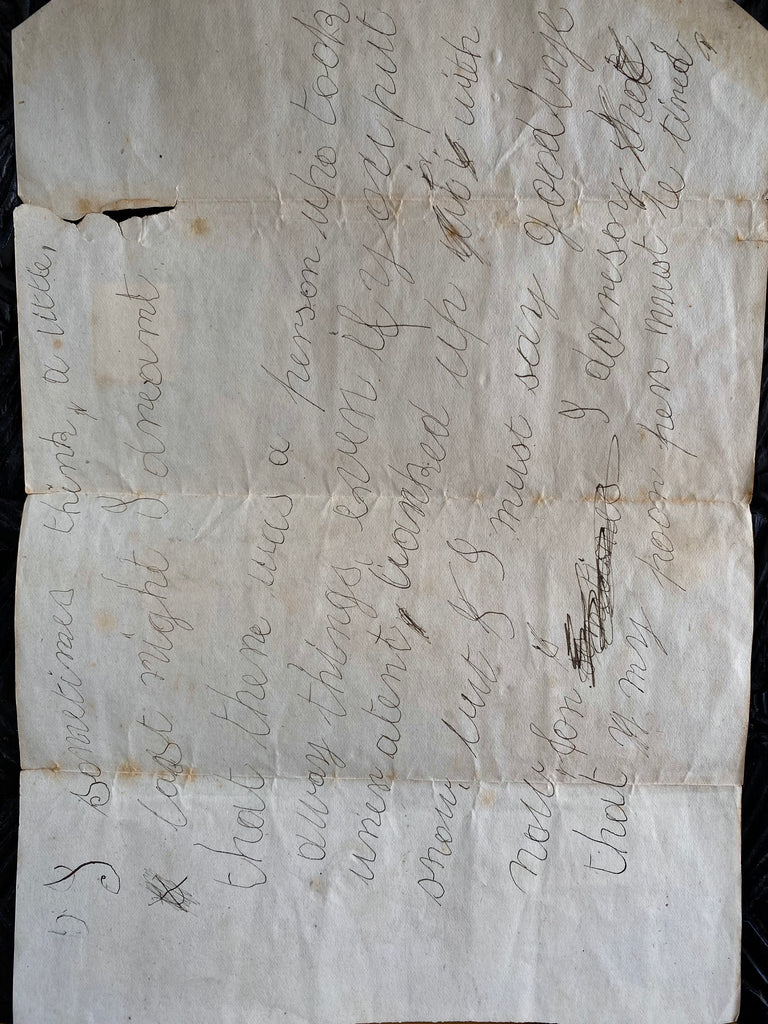 I sometimes think, a little,
last night I dreamt
that there was a person who took
away things even if you put
them atent, wanked up with
snow, but I I must say goodbye
now for I
I daresay that
that my poor pen must be tired,